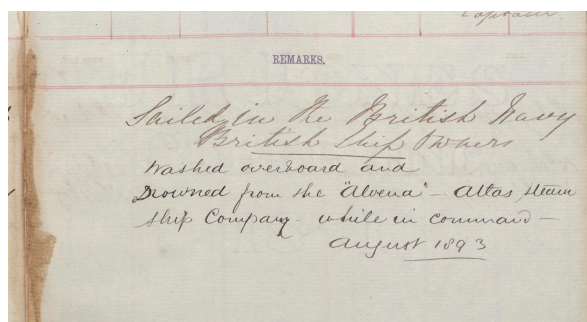 Captain
REMARKS.
Sailed in the British Navy
British Ship Owners
Washed overboard and
Drowned from the "Alvena" - Atlas steam
ship Company - while in command -
August 1893